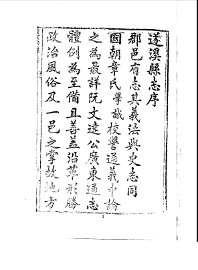 遂溪縣志序
郡邑有志其義法與史志同
國朝章氏學誠校讐通義中論
之為最詳阮文達公廣東通志
體例為至備且善蓋沿革形勝
政治風俗及一邑之掌故地方